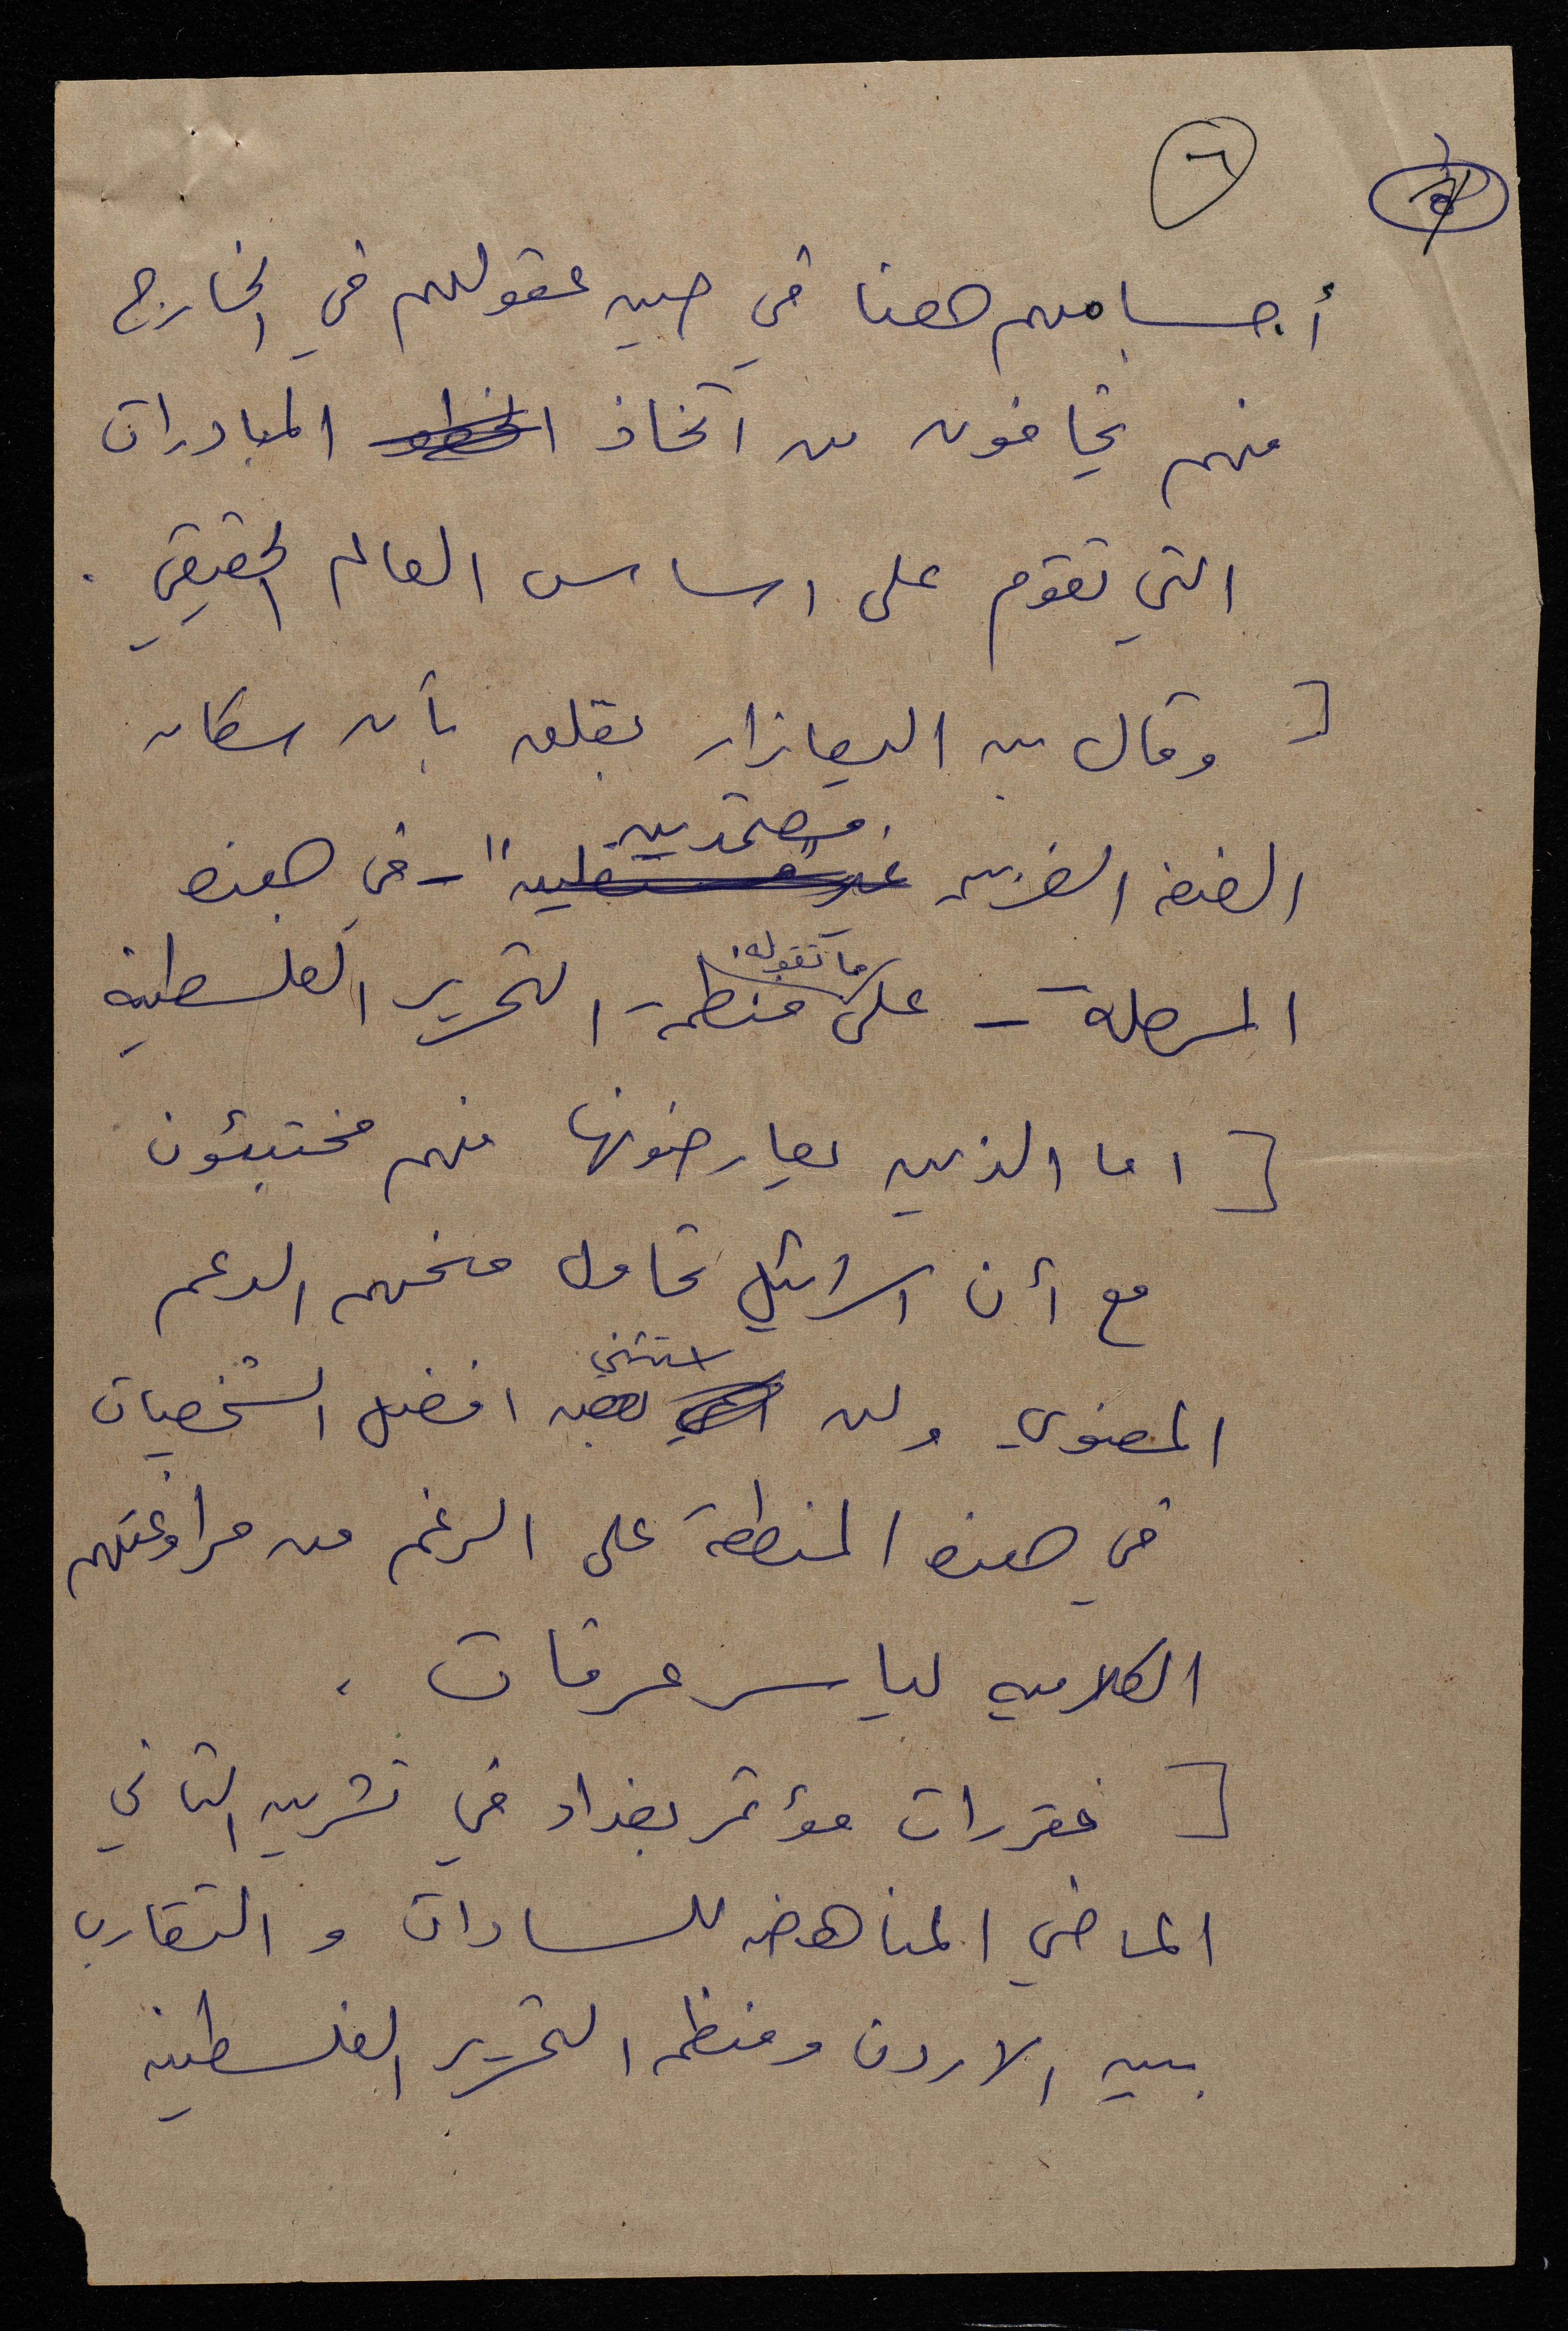 ٦
أجسامهم هنا في حين عقولهم في الخارج
فهم يخافون من اتخاذ المبادرات
التي تقوم على اساس العالم الحقيقي .
[ وقال بن اليعازار بقلق بأن سكان
معتمدين
الضفة الغربية غير مستقلين" - في هذه
ما تقوله
المرحلة - على منظمة التحرير الفلسطينية
[ اما الذين يعارضونها فهم مختبئون
مع أن اسرائيل تحاول منحهم الدعم
استثني
المعنوي ولن افضل الشخصيات
في هذه المنطقة على الرغم من مراوغتهم
الكلامية لياسر عرفات .
[ فقررات مؤتمر بغداد في تشرين الثاني
الماضي المناهضة للسادات و التقارب
بين الاردن ومنظمة التحرير الفلسطينية